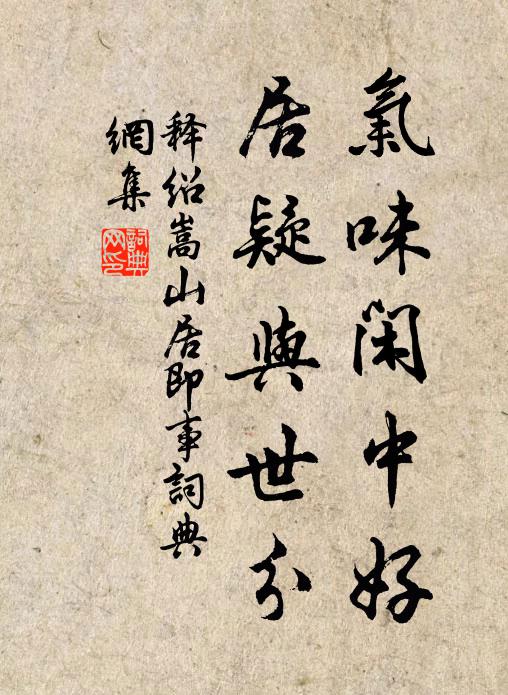 氣味閑中好
居疑與世分
释绍嵩山居即事詞典
網集
詞典
网印